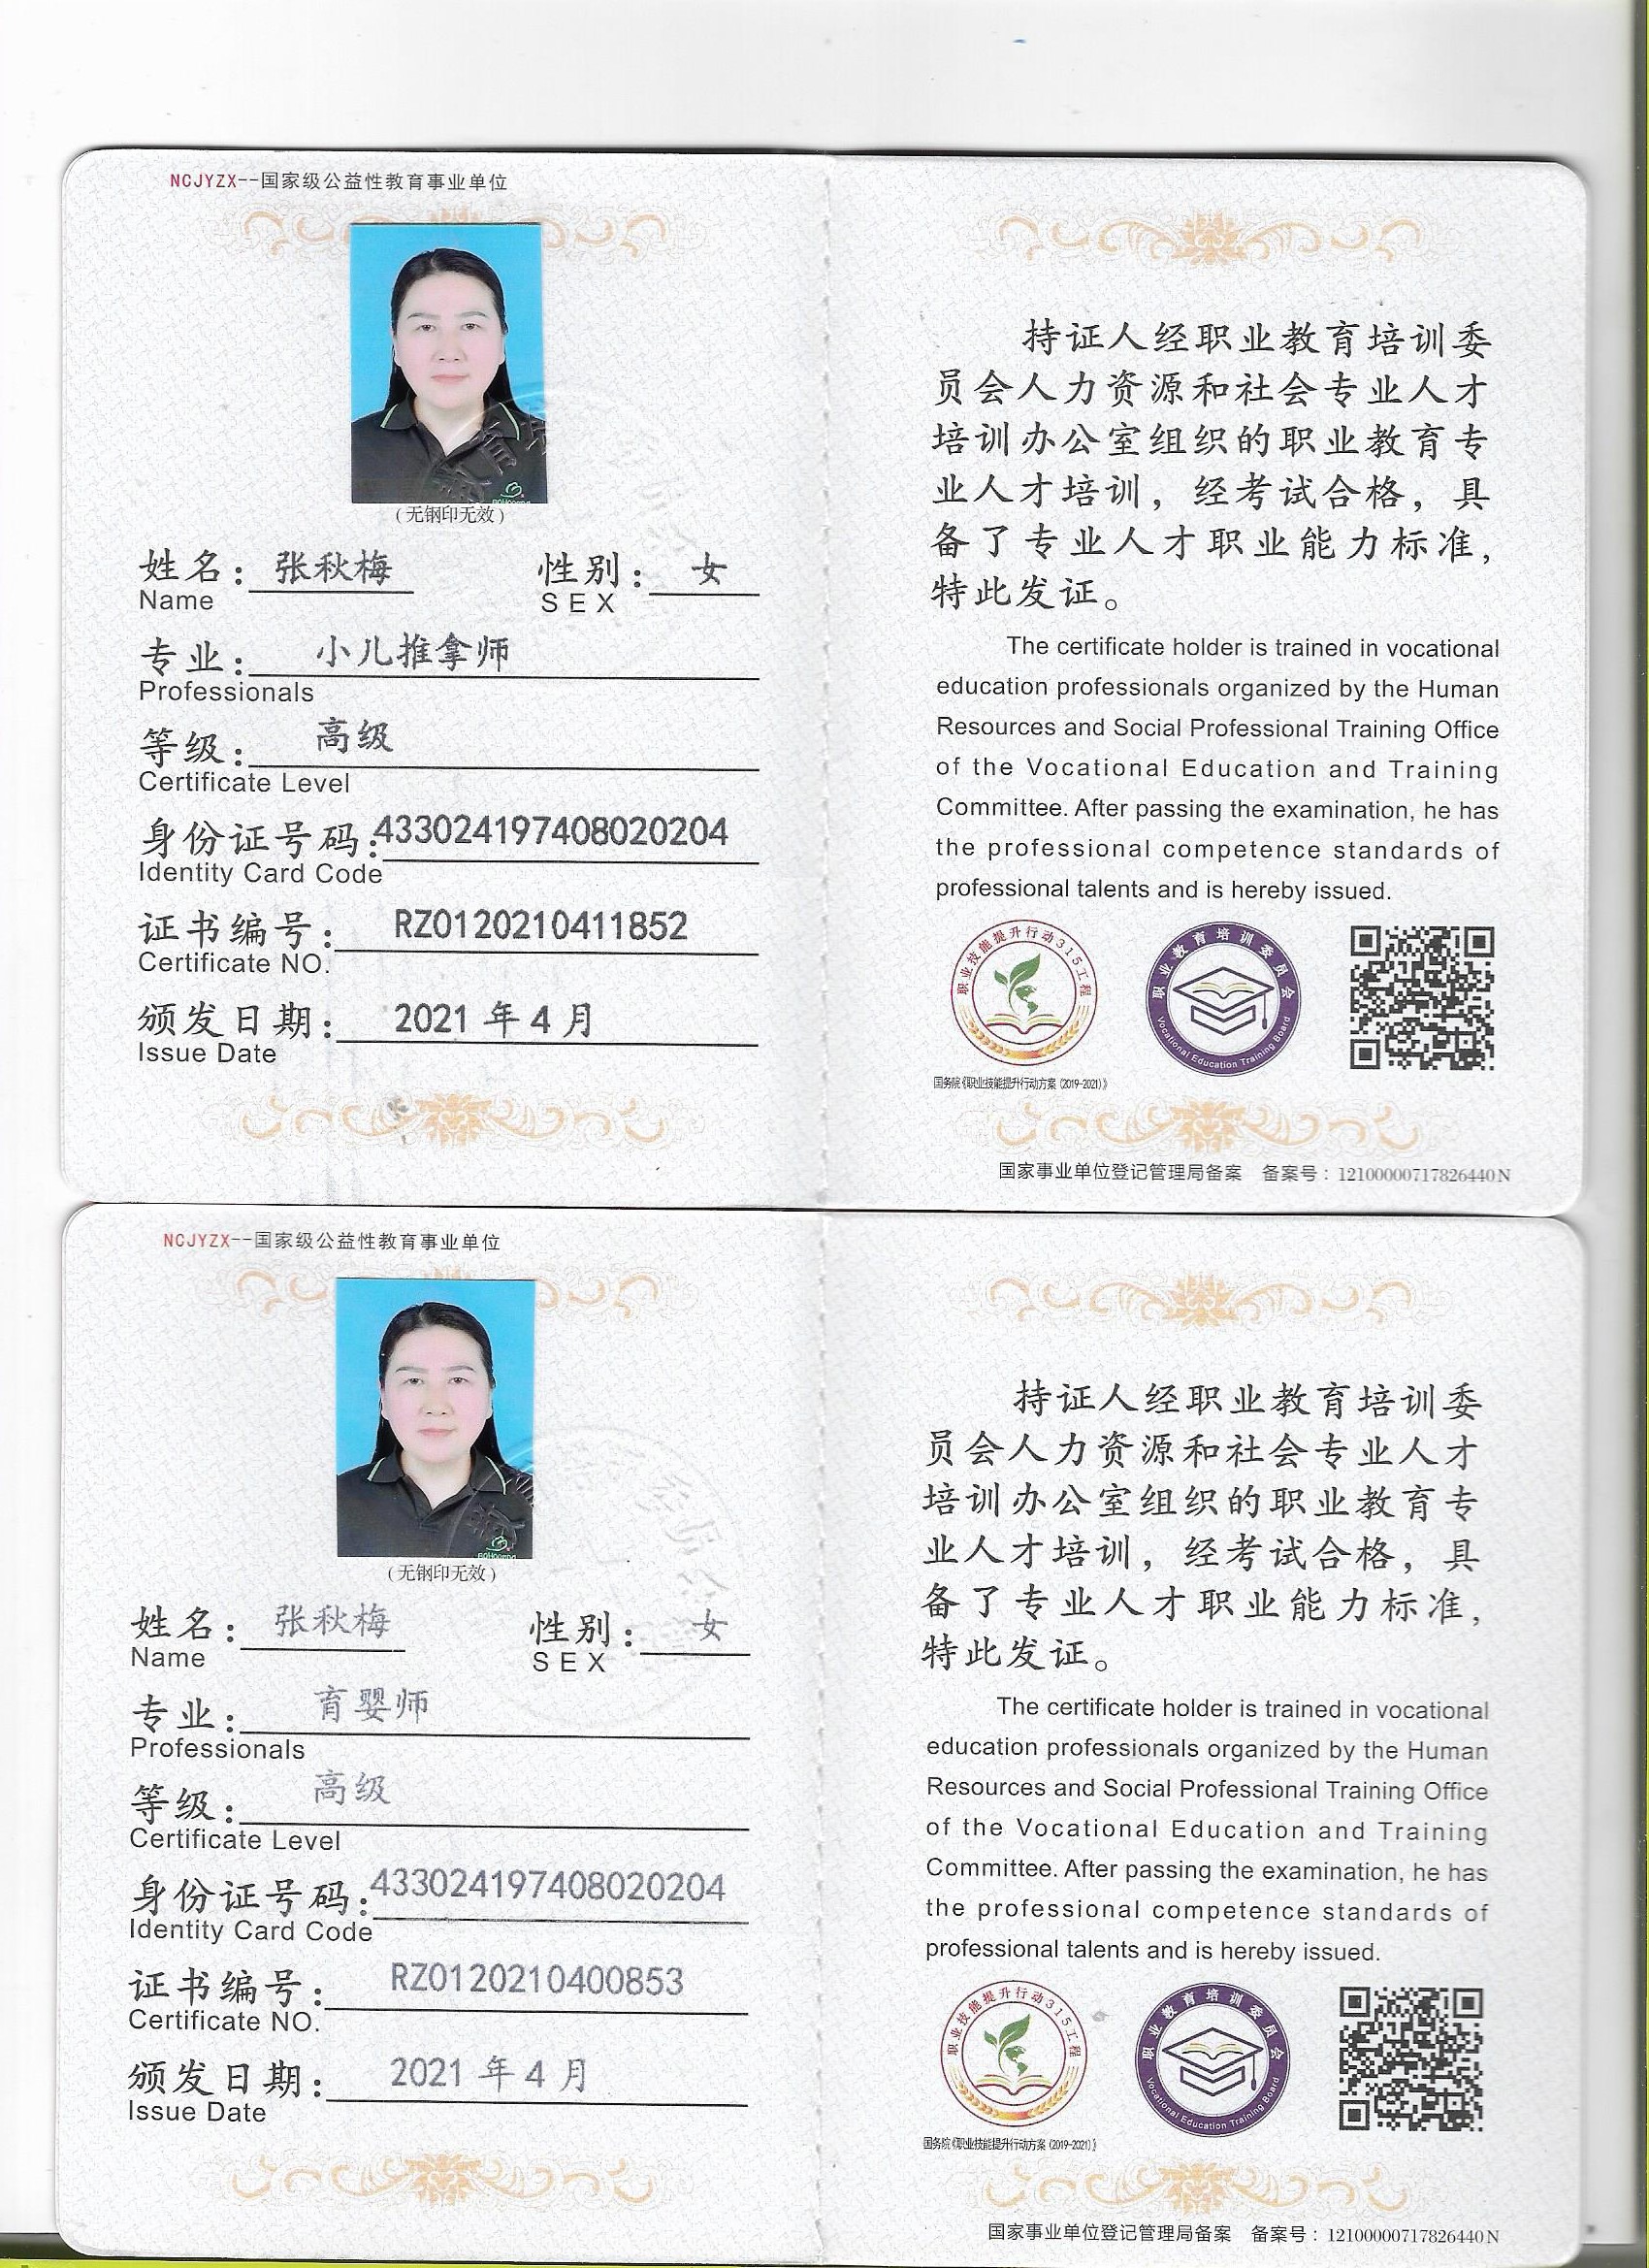 NCJYZX--国家级公益性教育事业单位
(无钢印无效)
姓名: 张秋梅 性别: 女
Name SEX
专业: 小儿推拿师
Professionals
等级: 高级
Certificate Level
身份证号码: 433024197408020204
Identity Card Code
证书编号: RZ0120210411852
Certificate NO.
颁发日期: 2021 年 4 月
Issue Date
持证人经职业教育培训委
员会人力资源和社会专业人才
培训办公室组织的职业教育专
业人才培训，经考试合格，具
备了专业人才职业能力标准，
特此发证。
The certificate holder is trained in vocational
education professionals organized by the Human
Resources and Social Professional Training Office
of the Vocational Education and Training
Committee. After passing the examination, he has
the professional competence standards of
professional talents and is hereby issued.
职业技能提升行动315工程
职业教育培训委员会
Vocational Education Training Board
国务院《职业技能提升行动方案(2019-2021)》
国家事业单位登记管理局备案 备案号：12100000717826440N
NCJYZX--国家级公益性教育事业单位
(无钢印无效)
姓名: 张秋梅 性别: 女
Name SEX
专业: 育婴师
Professionals
等级: 高级
Certificate Level
身份证号码: 433024197408020204
Identity Card Code
证书编号: RZ0120210400853
Certificate NO.
颁发日期: 2021 年 4 月
Issue Date
持证人经职业教育培训委
员会人力资源和社会专业人才
培训办公室组织的职业教育专
业人才培训，经考试合格，具
备了专业人才职业能力标准，
特此发证。
The certificate holder is trained in vocational
education professionals organized by the Human
Resources and Social Professional Training Office
of the Vocational Education and Training
Committee. After passing the examination, he has
the professional competence standards of
professional talents and is hereby issued.
职业技能提升行动315工程
职业教育培训委员会
Vocational Education Training Board
国务院《职业技能提升行动方案(2019-2021)》
国家事业单位登记管理局备案 备案号：12100000717826440N